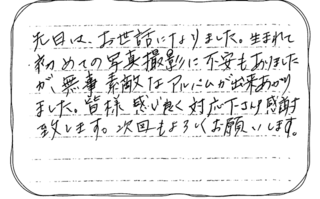 先日は、お世話になりました。生まれて
初めての写真撮影に不安もありました
が、無事素敵なアルバムが出来あがり
ました。皆様感じ良く対応下さり感謝
致します。次回もよろしくお願いします。